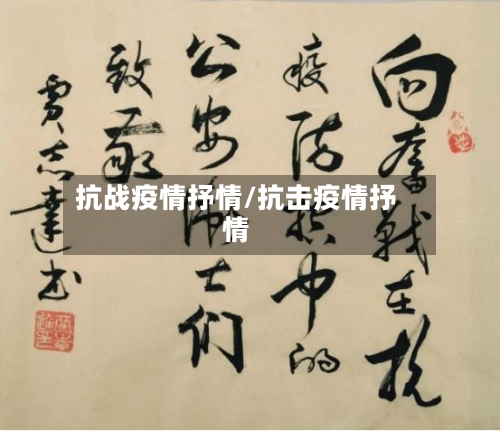 向奮戰在抗
疫防控中的
公安衛士们
致敬
賈志達书
抗战疫情抒情/抗击疫情抒
情